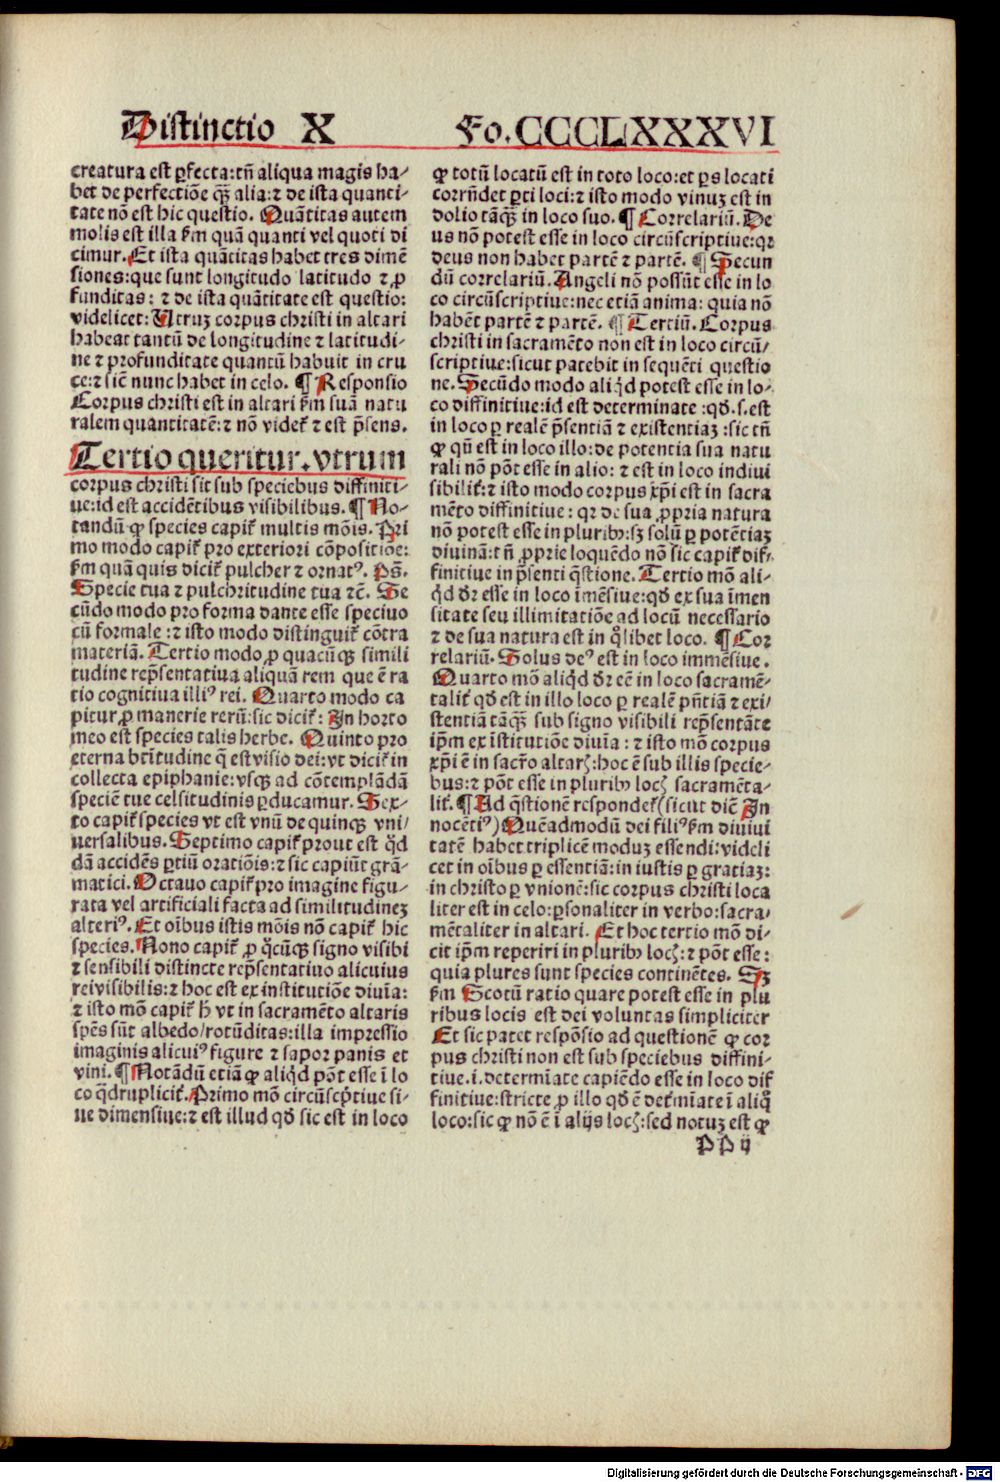 Distinctio X Fo. CCCCLXXXVI
creatura est ꝑfecta: tñ aliqua magis ha⸗
bet de perfectiōe qꝫ̄ alia: ⁊ de ista quanti⸗
tate nō est hic questio. Quātitas autem
molis est illa ẜm quā quanti vel quoti di
cimur. Et ista quātitas habet tres dimē
siones: que sunt longitudo latitudo ⁊ ꝓ
funditas: ⁊ de ista quātitate est questio:
videlicet: Utruꝫ corpus christi in altari
habeat tantū de longitudine ⁊ latitudi⸗
ne ⁊ profunditate quantū habuit in cru
ce: ⁊ sic̄ nunc habet in celo. ¶ Responsio
Corpus christi est in altari ẜm suā natu
ralem quantitatē: ⁊ nō videt᷑ ⁊ est p̄sens.
Tertio queritur. vtrum
corpus christi sit sub speciebus diffiniti⸗
ue: id est accidētibus visibilibus. ¶ No⸗
tandū ꝙ species capit᷑ multis mōis. Pri
mo modo capit᷑ pro exteriori cōpositiōe:
ẜm quā quis dicit᷑ pulcher ⁊ ornatꝰ. Ps̄.
Specie tua ⁊ pulchritudine tua ⁊c̄. Se
cūdo modo pro forma dante esse speciuo
cū formale: ⁊ isto modo distinguit᷑ cōtra
materiā. Tertio modo ꝓ quacūqꝫ simili
tudine rep̄sentatiua aliquā rem que ē ra
tio cognitiua illiꝰ rei. Quarto modo ca
pitur ꝓ manerie rerū: sic dicit᷑: In horto
meo est species talis herbe. Quinto pro
eterna btītudine q̄ est visio dei: vt dicit᷑ in
collecta epiphanie: vsqꝫ ad cōtemplādā
speciē tue celsitudinis ꝑducamur. Sex⸗
to capit᷑ species vt est vnū de quinqꝫ vni⸗
uersalibus. Septimo capit᷑ prout est qͥd
dā accidēs ꝑtiū oratiōis: ⁊ sic capiūt grā⸗
matici. Octauo capit᷑ pro imagine figu⸗
rata vel artificiali facta ad similitudineꝫ
alteriꝰ. Et oībus istis mōis nō capit᷑ hic
species. Nono capit᷑ ꝓ qͥcūqꝫ signo visibi
⁊ sensibili distincte rep̄sentatiuo alicuius
rei visibilis: ⁊ hoc est ex institutiōe diuīa:
⁊ isto mō capit᷑ h̄ vt in sacramēto altaris
spēs sūt albedo/ rotūditas: illa impressio
imaginis alicuiꝰ figure ⁊ sapor panis et
vini. ¶ Notādū etiā ꝙ aliqͥd pōt esse ī lo
co qͣdruplicit᷑. Primo mō circūscp̄tiue si⸗
ue dimensiue: ⁊ est illud qð sic est in loco
ꝙ totū locatū est in toto loco: et ꝑs locati
corrn̄det ꝑti loci: ⁊ isto modo vinuꝫ est in
dolio tāqꝫ̄ in loco suo. ¶ Correlariū. De
us nō potest esse in loco circūscriptiue: qꝛ
deus non habet partē ⁊ partē. ¶ Secun
dū correlariū. Angeli nō possūt esse in lo
co circūscriptiue: nec etiā anima: quia nō
habēt partē ⁊ partē. ¶ Tertiū. Corpus
christi in sacramēto non est in loco circū⸗
scriptiue: sicut patebit in sequēti questio
ne. Secūdo modo aliqͥd potest esse in lo⸗
co diffinitiue: id est determinate: qð. s. est
in loco ꝑ realē p̄sentiā ⁊ existentiaꝫ: sic tñ
ꝙ qn̄ est in loco illo: de potentia sua natu
rali nō pōt esse in alio: ⁊ est in loco indiui
sibilit᷑: ⁊ isto modo corpus xp̄i est in sacra
mēto diffinitiue: qꝛ de sua ꝓpria natura
nō potest esse in pluribꝰ: sꝫ solū ꝑ potētiaꝫ
diuinā: tñ ꝓprie loquēdo nō sic capit᷑ dif⸗
finitiue in p̄senti q̄stione. Tertio mō ali⸗
qͥd dr̄ esse in loco īmēsiue: qð ex sua īmen
sitate seu illimitatiōe ad locū necessario
⁊ de sua natura est in qͦlibet loco. ¶ Cor
relariū. Solus deꝰ est in loco immēsiue.
Quarto mō aliqͥd dr̄ eē in loco sacramē⸗
talit᷑ qð est in illo loco ꝑ realē pn̄tiā ⁊ exi⸗
stentiā tāqꝫ̄ sub signo visibili rep̄sentāte
ip̄m ex īstitutiōe diuīa: ⁊ isto mō corpus
xp̄i ē in sacr̄o altarꝭ: hoc ē sub illis specie⸗
bus: ⁊ pōt esse in pluribꝰ locꝭ sacramēta⸗
lit᷑. ¶ Ad q̄stionē respondet᷑ (sicut dic̄ In
nocētiꝰ) Quēadmodū dei filiꝰ ẜm diuini
tatē habet triplicē moduꝫ essendi: videli
cet in oībus ꝑ essentiā: in iustis ꝑ gratiaꝫ:
in christo ꝑ vnionē: sic corpus christi loca
liter est in celo: ꝑsonaliter in verbo: sacra⸗
mētaliter in altari. Et hoc tertio mō di⸗
cit ip̄m reperiri in pluribꝰ locꝭ: ⁊ pōt esse:
quia plures sunt species continētes. Sꝫ
ẜm Scotū ratio quare potest esse in plu
ribus locis est dei voluntas simpliciter
Et sic patet respōsio ad questionē ꝙ cor
pus christi non est sub speciebus diffini⸗
tiue. i. determīate capiēdo esse in loco dif
finitiue: stricte ꝓ illo qð ē det᷑mīate ī aliqͦ
loco: sic ꝙ nō ē ī alijs locꝭ: sed notuꝫ est ꝙ
PP ij
Digitalisierung gefördert durch die Deutsche Forschungsgemeinschaft - DFG